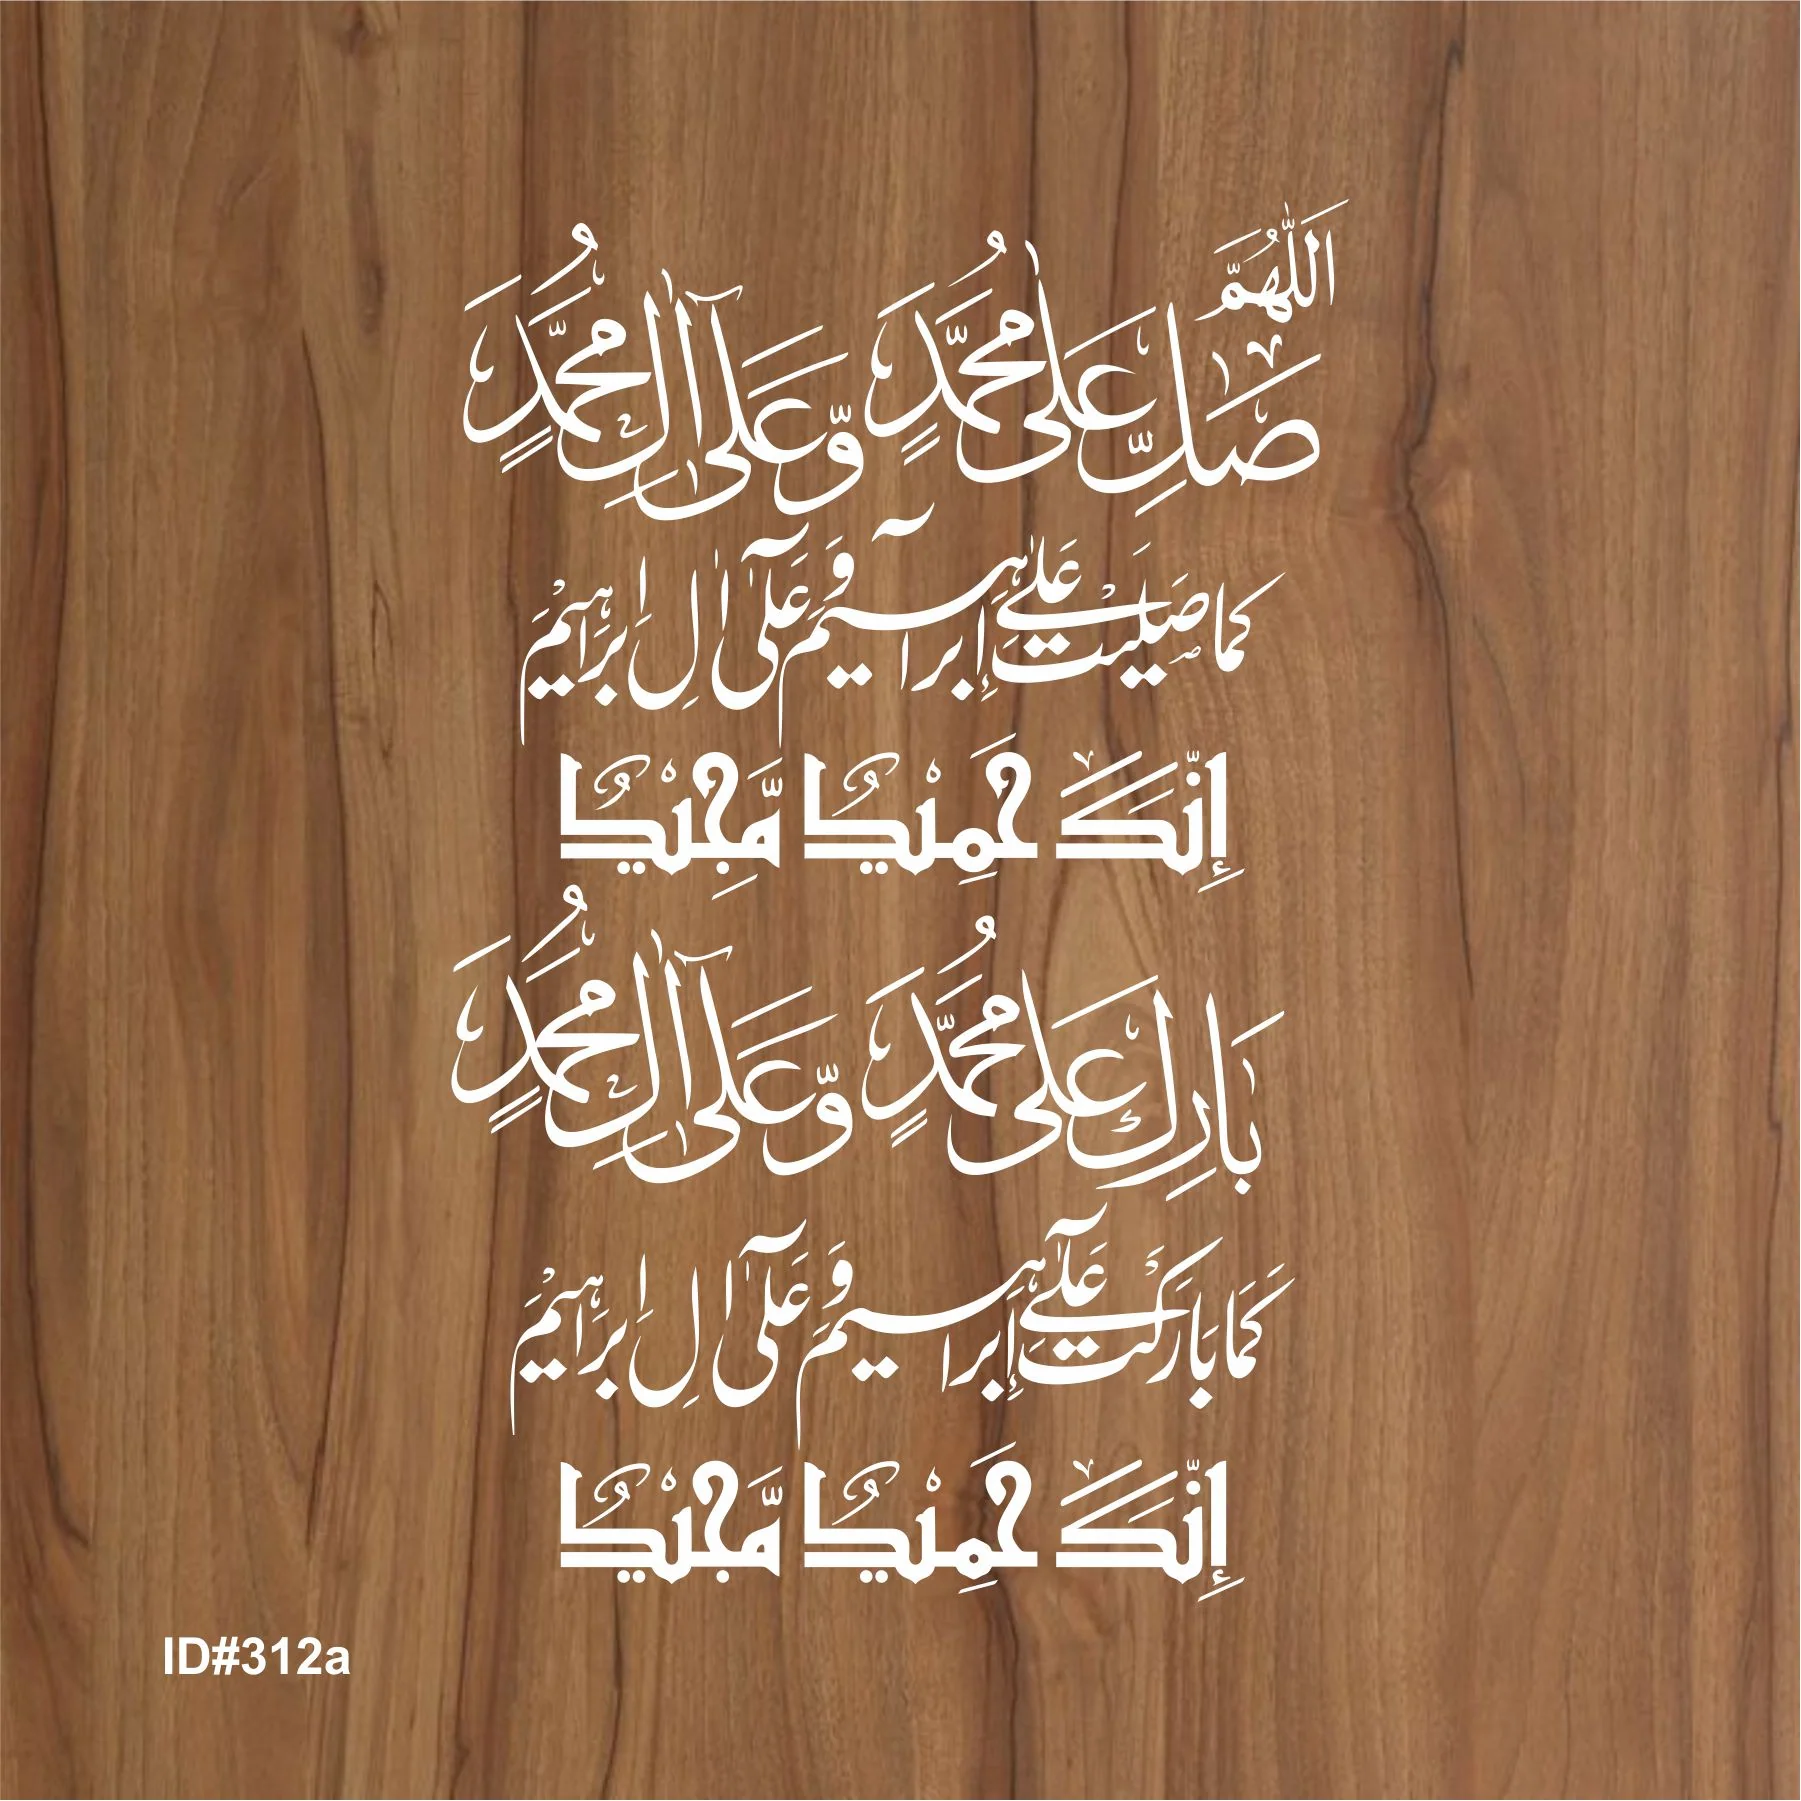 اَللّٰهُمَّ
صَلِّ عَلٰى مُحَمَّدٍ وَّعَلٰى آلِ مُحَمَّدٍ
كما صليت على إبراهيم وعلى ال إبراهيم
إِنَّكَ حَمِيْدٌ مَّجِيْدٌ
بَارِكْ عَلَى مُحَمَّدٍ وَّعَلَى آلِ مُحَمَّدٍ
كَمَا بَارَكْتَ عَلَى إِبراهيم وعلى ال إبراهيم
إِنَّكَ حَمِيْدٌ مَّجِيْدٌ
ID#312a